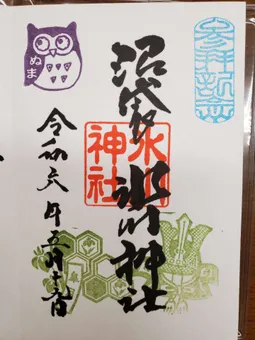 参拝記念
沼袋氷川神社
氷川
神社
ぬま
令和六年五月